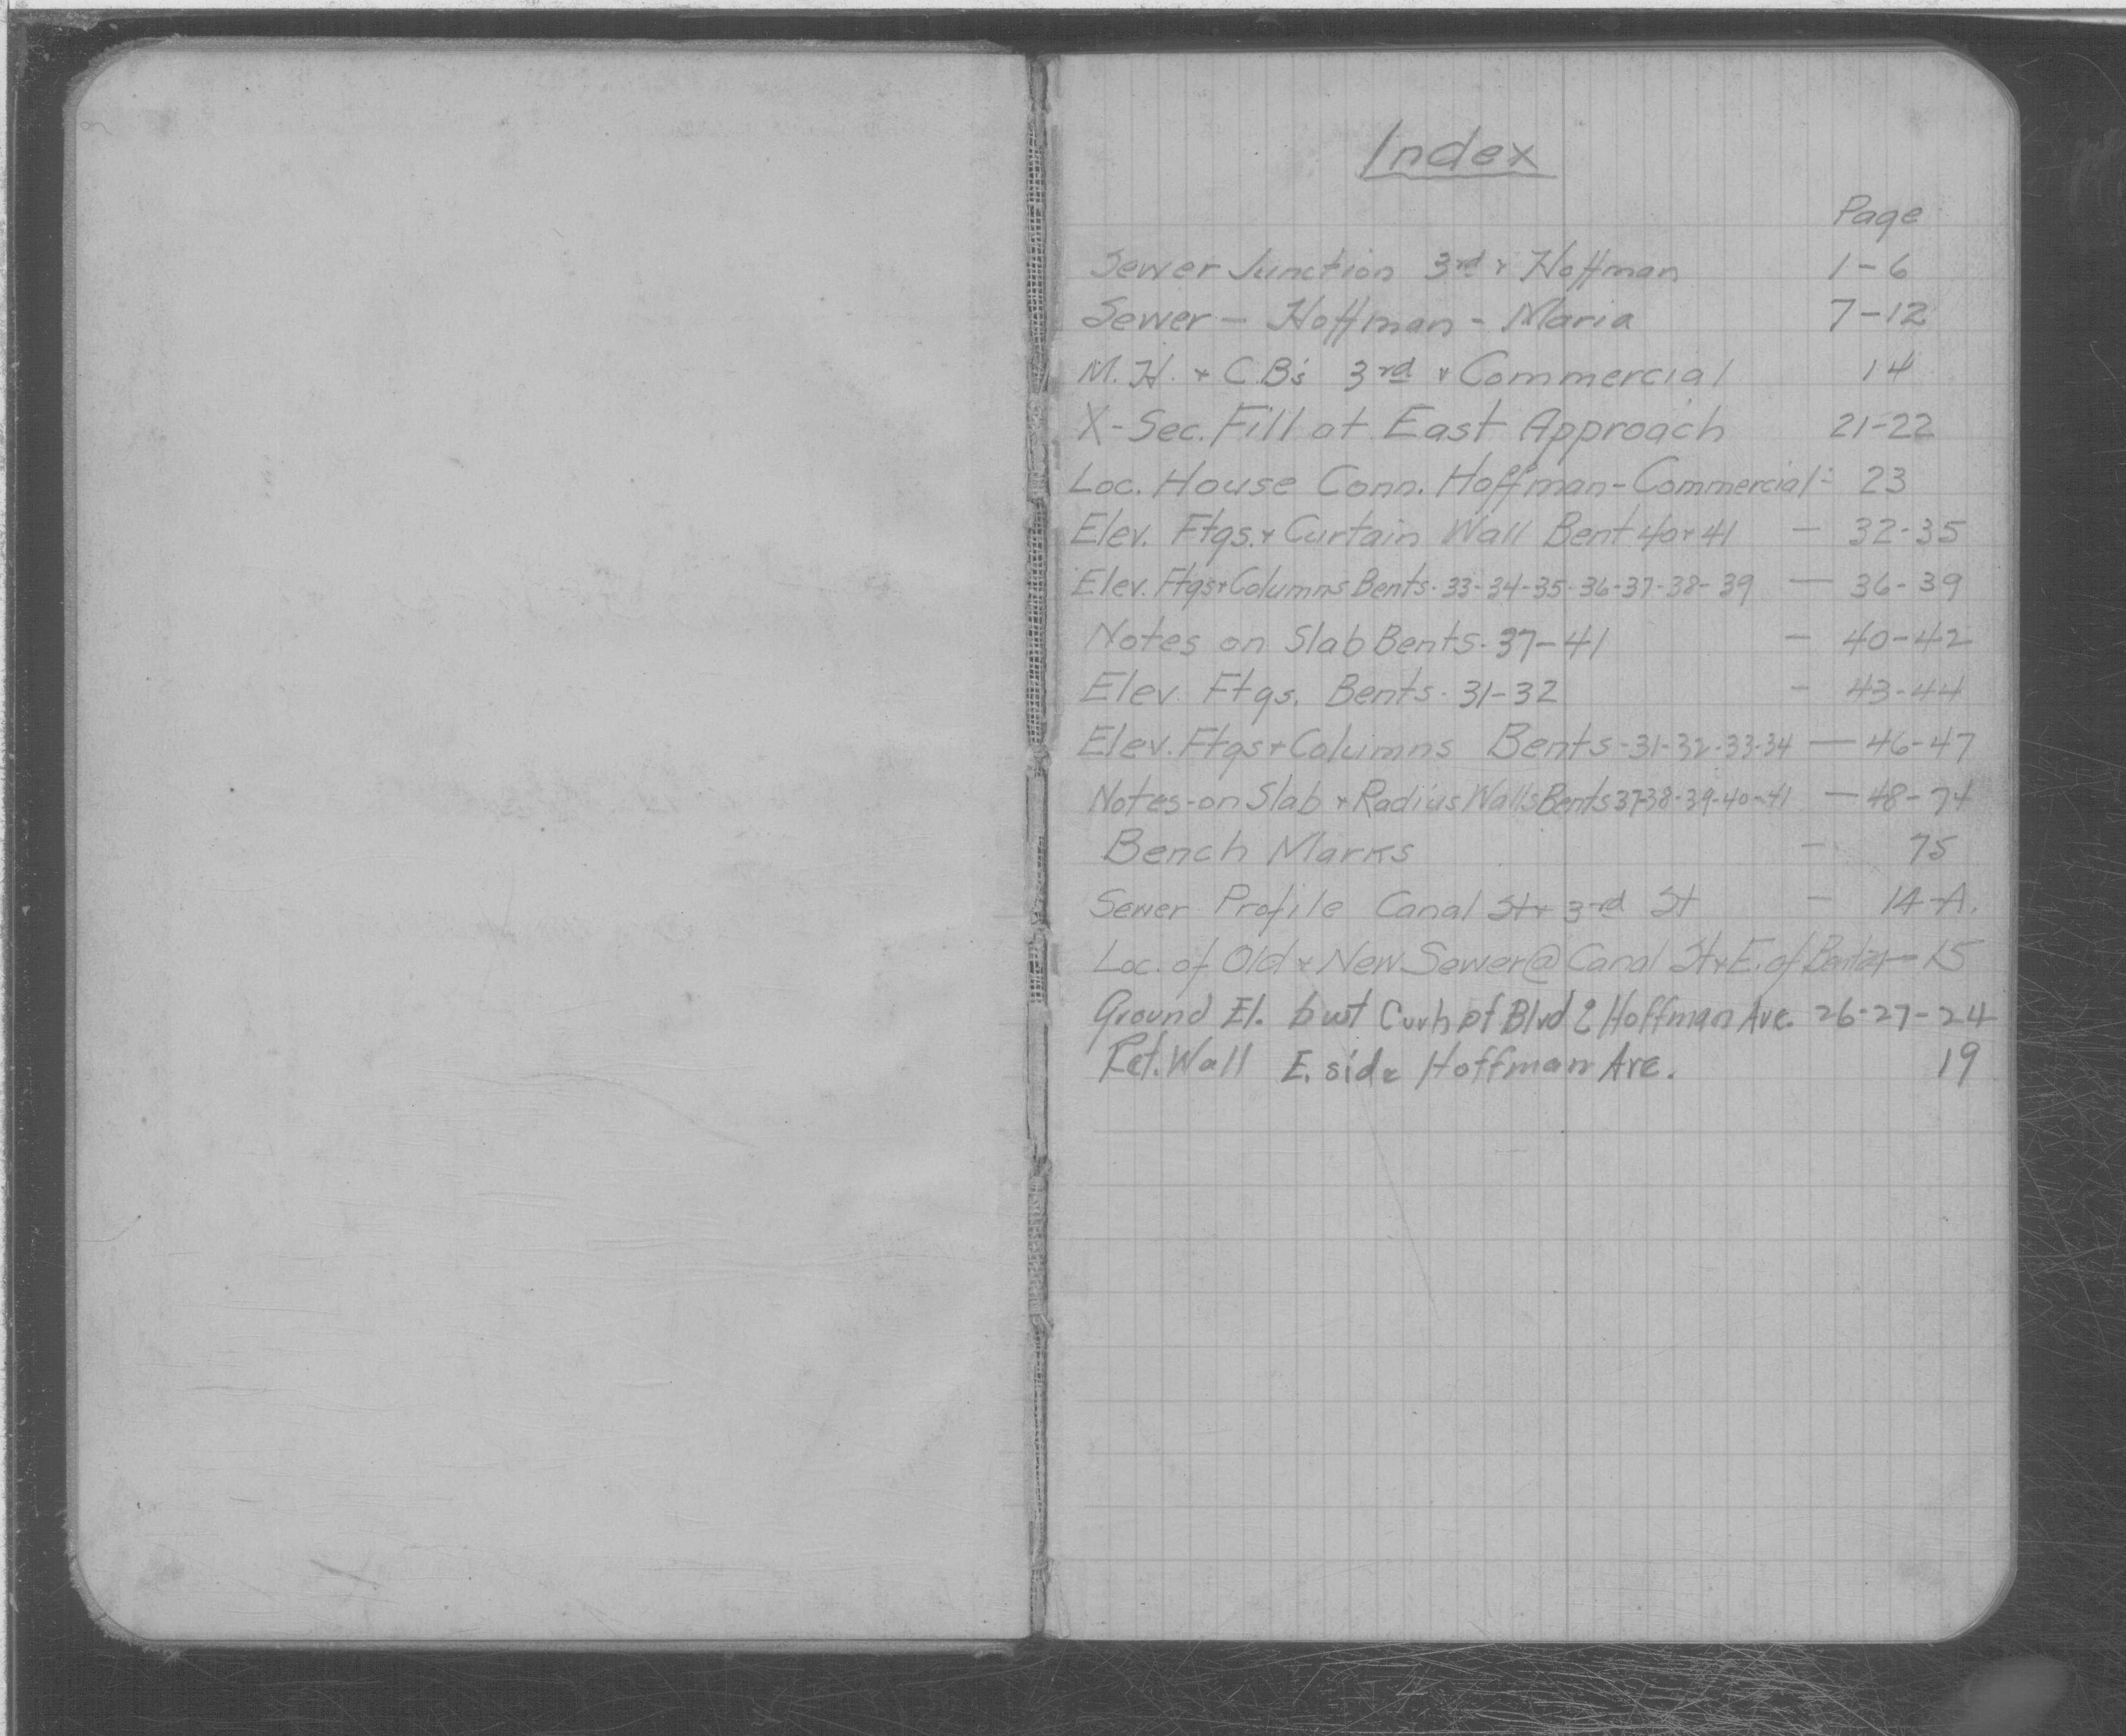 Index
Page
Sewer Junction 3rd + Hoffman 1-6
Sewer - Hoffman - Maria 7-12
M.H. + C.B's 3rd + Commercial 14
X-Sec. Fill at East Approach 21-22
Loc. House Conn. Hoffman-Commercial - 23
Elev. Ftgs. + Curtain Wall Bent 40+41 - 32-35
Elev. Ftgs+Columns Bents-33-34-35-36-37-38-39 - 36-39
Notes on Slab Bents-37-41 - 40-42
Elev. Ftgs. Bents-31-32 - 43-44
Elev. Ftgs+Columns Bents-31-32-33-34 - 46-47
Notes-on Slab + Radius Walls Bents 37-38-39-40-41 - 48-74
Bench Marks - 75
Sewer Profile Canal St + 3rd St - 14-A.
Loc. of Old + New Sewer @ Canal St + E. of - 15
Ground El. bwt Curb of Blvd & Hoffman Ave. 26-27-24
Ret. Wall E. side Hoffman Ave. 19